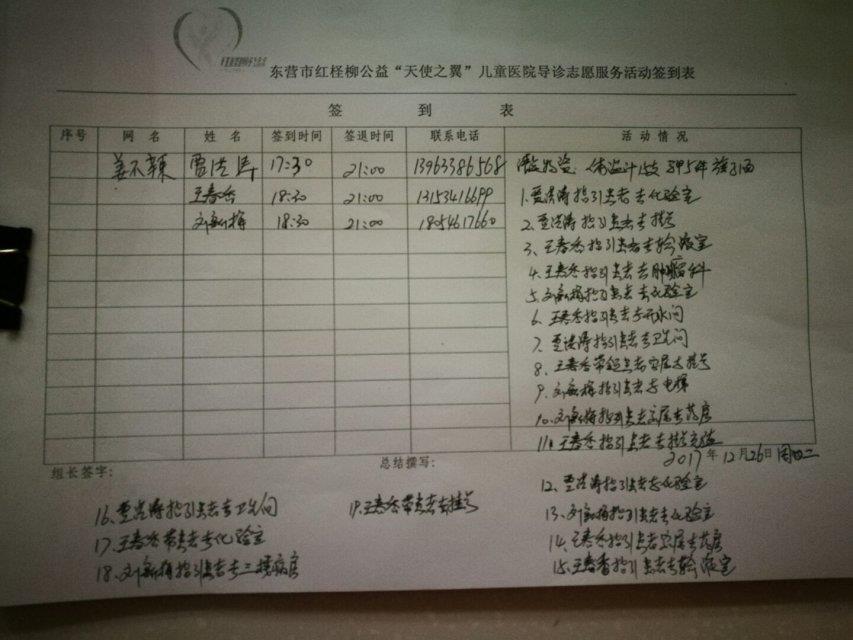 东营市红柽柳公益“天使之翼”儿童医院导诊志愿服务活动签到表
签 到 表
序号 网 名 姓 名 签到时间 签退时间 联系电话 活 动 情 况
姜不辣 17:30 21:00 13963386568
王春香 18:30 21:00 13153416699
刘新梅 18:30 21:00 18054617660
1.贾洪涛指引患者去化验室
2.贾洪涛指引患者去挂号
3、王春香指引患者去输液室
4.王春香指引患者去肿瘤科
5.刘新梅指引患者去化验室
6.王春香指引患者去开水间
7.贾洪涛指引患者去卫生间
8.王春香带领患者家属去挂号
9.刘新梅指引患者去电梯
10.刘新梅指引患者家属去药房
11.王春香指引患者去
2017年12月26日周二
组长签字：
总结撰写：
12、贾洪涛指引患者去化验室
13、刘新梅指引患者去化验室
14、王春香指引患者家属去药房
15、王春香指引患者去输液室
16、贾洪涛指引患者去卫生间
17、王春香带患者去化验室
18、刘新梅指引患者去三楼病房
19.王春香带患者去挂号